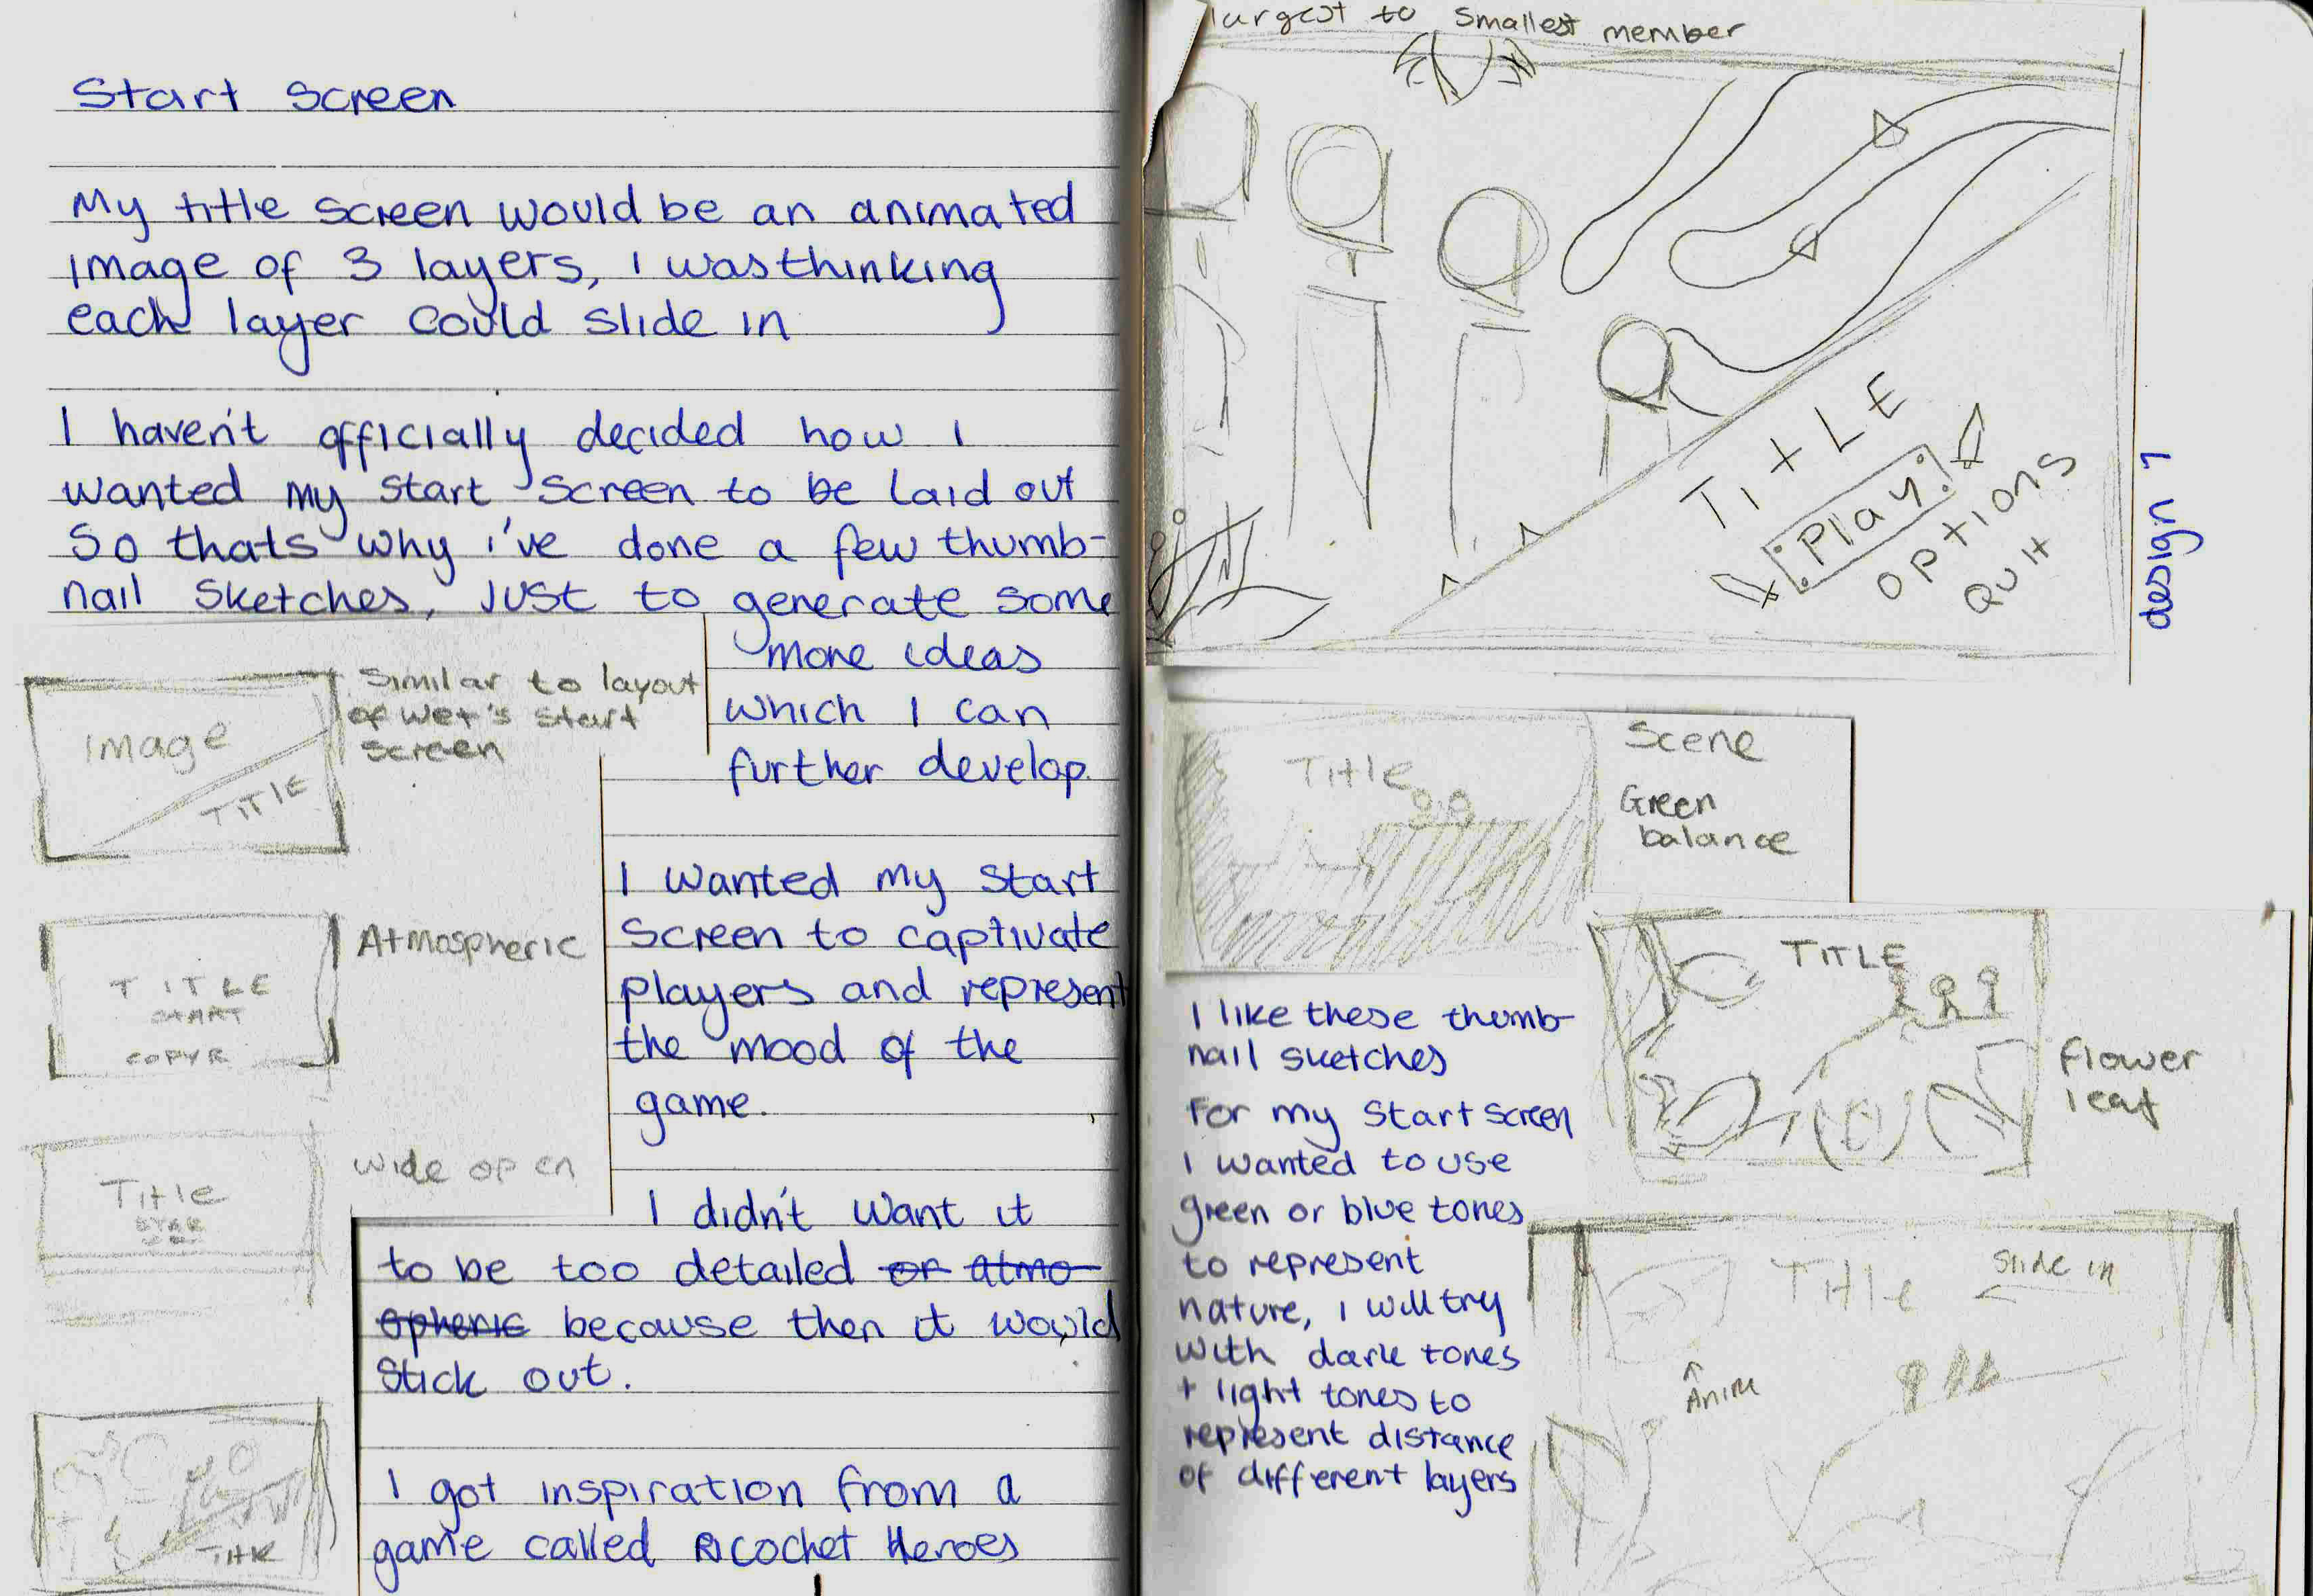 Start Screen
My title screen would be an animated
image of 3 layers, i was thinking
each layer could slide in
I haven't officially decided how i
wanted my start screen to be laid out
so thats why i've done a few thumb-
nail sketches, just to generate some
more ideas
which i can
further develop.
Similar to layout
of wet's start
screen
Image
TITLE
I wanted my start
screen to captivate
players and represent
the mood of the
game.
Atmospheric
TITLE
START
COPYR
wide open
Title
STAR
I didn't want it
to be too detailed or atmo-
spheric because then it would
stick out.
TITLE
I got inspiration from a
game called Ricochet Heroes
largest to smallest member
TITLE
Play
OPTIONS
QUIT
design 1
Title
Scene
Green
balance
TITLE
flower
leaf
I like these thumb-
nail sketches
For my start screen
i wanted to use
green or blue tones
to represent
nature, i will try
with dark tones
+ light tones to
represent distance
of different layers
Title
slide in
Anim